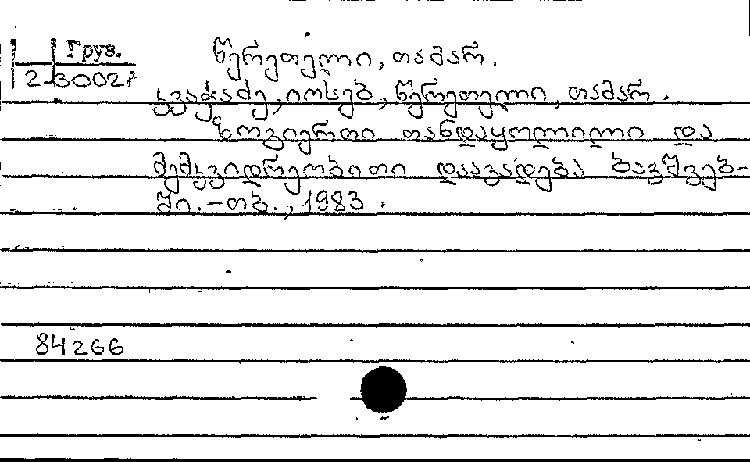 Груз.
2-30021
წერეთელი, თამარ.
კვაჭაძე, იოსებ, წერეთელი, თამარ.
ზოგიერთი თანდაყოლილი და
მემკვიდრეობითი დაავადება ბავშვებ-
ში. - თბ., 1983.
84266